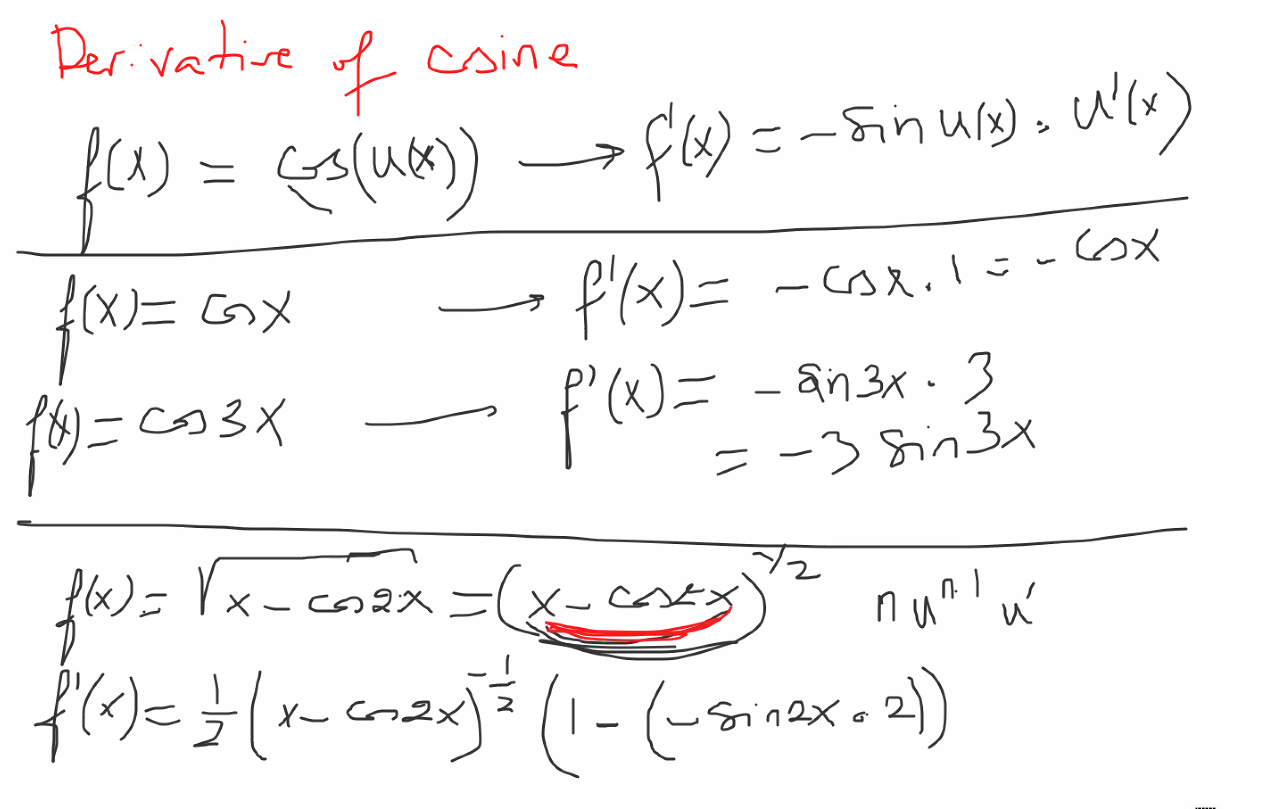 Derivative of csine
f(x) = cos(u(x)) → f'(x) = -sin u(x) · u'(x)
f(x) = cosx → f'(x) = -cosx · 1 = -cosx
f(x) = cos3x — f'(x) = -sin3x · 3
= -3 sin3x
f(x) = √(x - cos2x) = (x - cos2x)^1/2 n u^n-1 u'
f'(x) = 1/2 (x - cos2x)^-1/2 (1 - (-sin2x · 2))